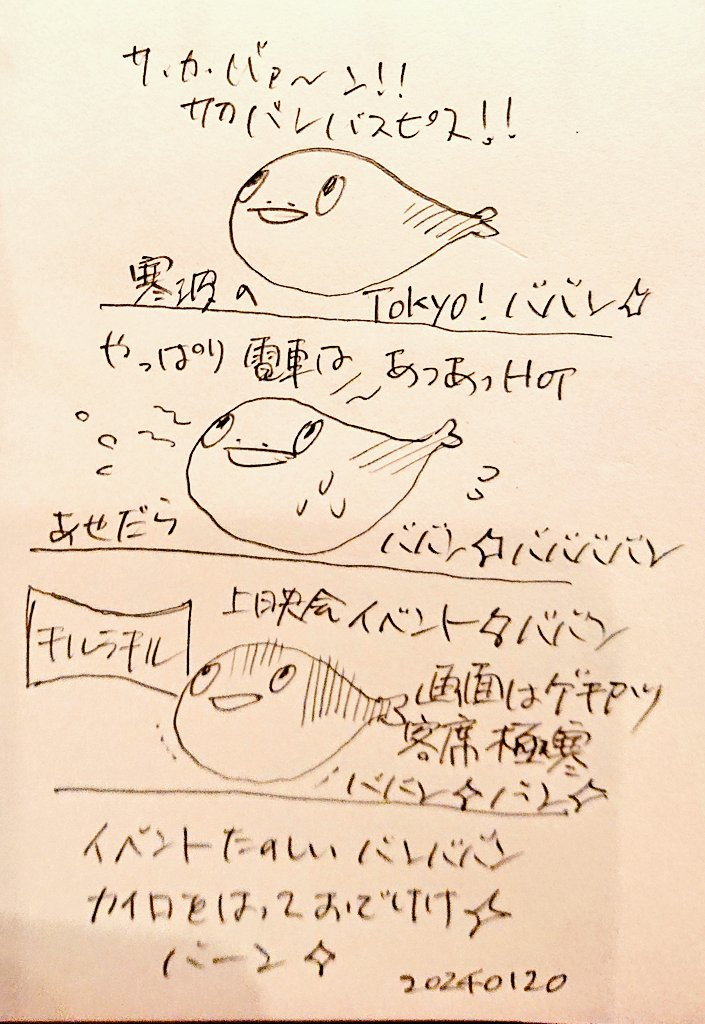 サ・カ・バァ〜ン!!
サカバンバスピス!!
寒波の TOKYO! ババン☆
やっぱり電車は あつあっHOT
あせだら
ババン☆ババババン
キルラキル
上映会イベント☆ババン
画面はゲキアツ
客席極寒
ババン☆バン☆
イベントたのしいバンババン
カイロをはっておでけけ☆
バーン☆
20240120